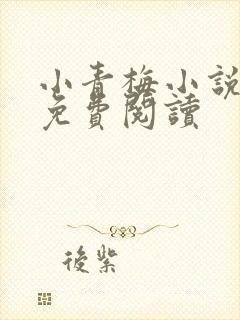 小青梅小說
免費閱讀
後紫